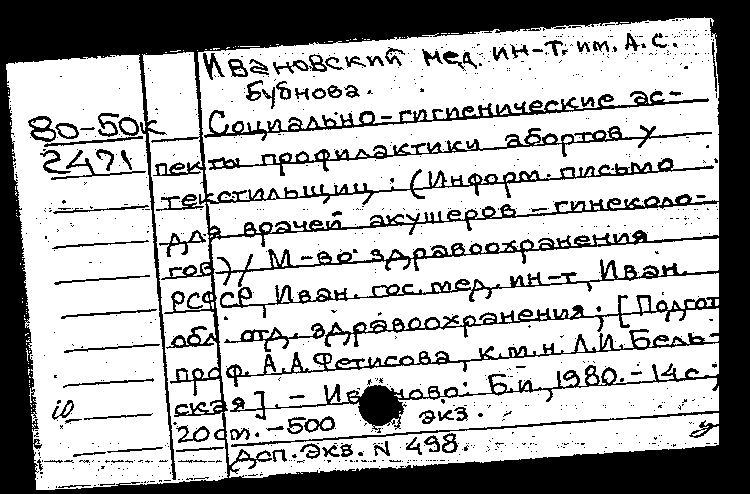 Ивановский мед. ин-т. им. А.С.
Бубнова.
80-50к Социально-гигиенические ас-
2471 пекты профилактики абортов у
текстильщиц : (Информ. письмо
для врачей акушеров-гинеколо-
гов) / М-во здравоохранения
РСФСР, Иван. гос. мед. ин-т, Иван.
обл. отд. здравоохранения; [Подгот
проф. А.А. Фетисова, к.м.н. Л.И. Бель-
ская]. - Иваново: Б.и., 1980. - 14 с.;
20 см. - 500 экз.
Доп. экз. N 498.